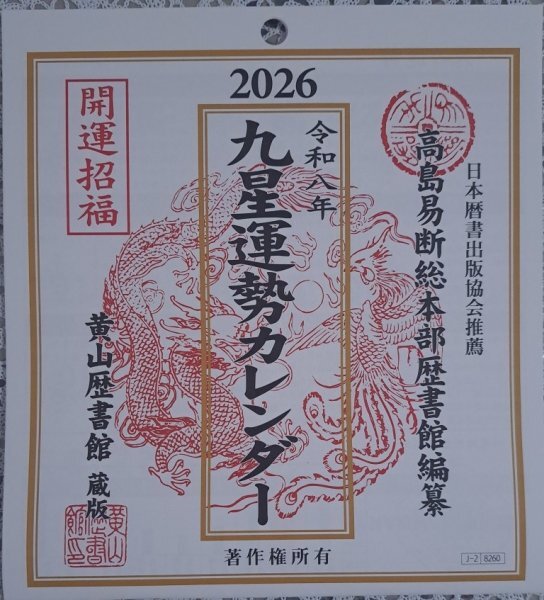 2026
日本暦書出版協会推薦
高島易断総本部歴書館編纂
令和八年
九星運勢カレンダー
開運招福
黄山歴書館 蔵版
黄山
歴書
館印
著作権所有
J-2 8260